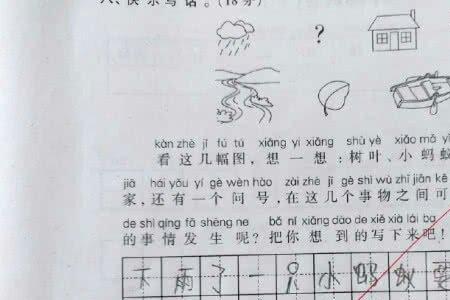 八、快乐写话。(18分)
?
kàn zhè jǐ fú tú xiǎng yi xiǎng shù yè xiǎo mǎ yǐ
看这几幅图,想一想:树叶、小蚂蚁
jiā hái yǒu yí gè wèn hào zài zhè jǐ gè shì wù zhī jiān kě
家,还有一个问号,在这几个事物之间可
de shì qing fā shēng ne bǎ nǐ xiǎng dào de xiě xià lái ba
的事情发生呢?把你想到的写下来吧!
下雨了一小水蚂蚁要